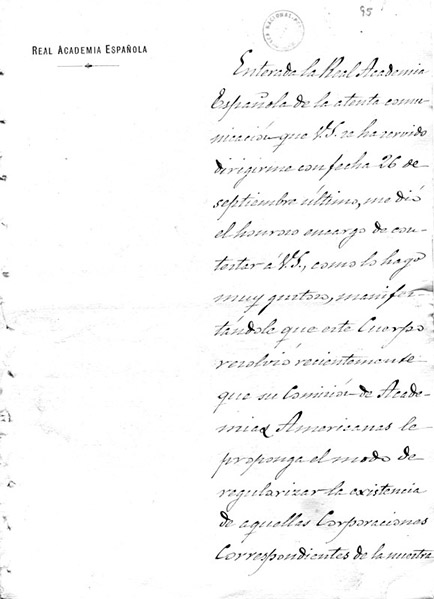 95
REAL ACADEMIA ESPAÑOLA
Enterada la Real Academia
Española de la atenta comu-
nicación que V.S. se ha servido
dirigirme con fecha 26 de
septiembre último, me dió
el honroso encargo de con-
testar á V.S., como lo hago
muy gustoso, manifes-
tándole que este Cuerpo
resolvió recientemente
que su Comisión de Acade-
mias Americanas le
proponga el modo de
regularizar la existencia
de aquellas Corporaciones
Correspondientes de la nuestra